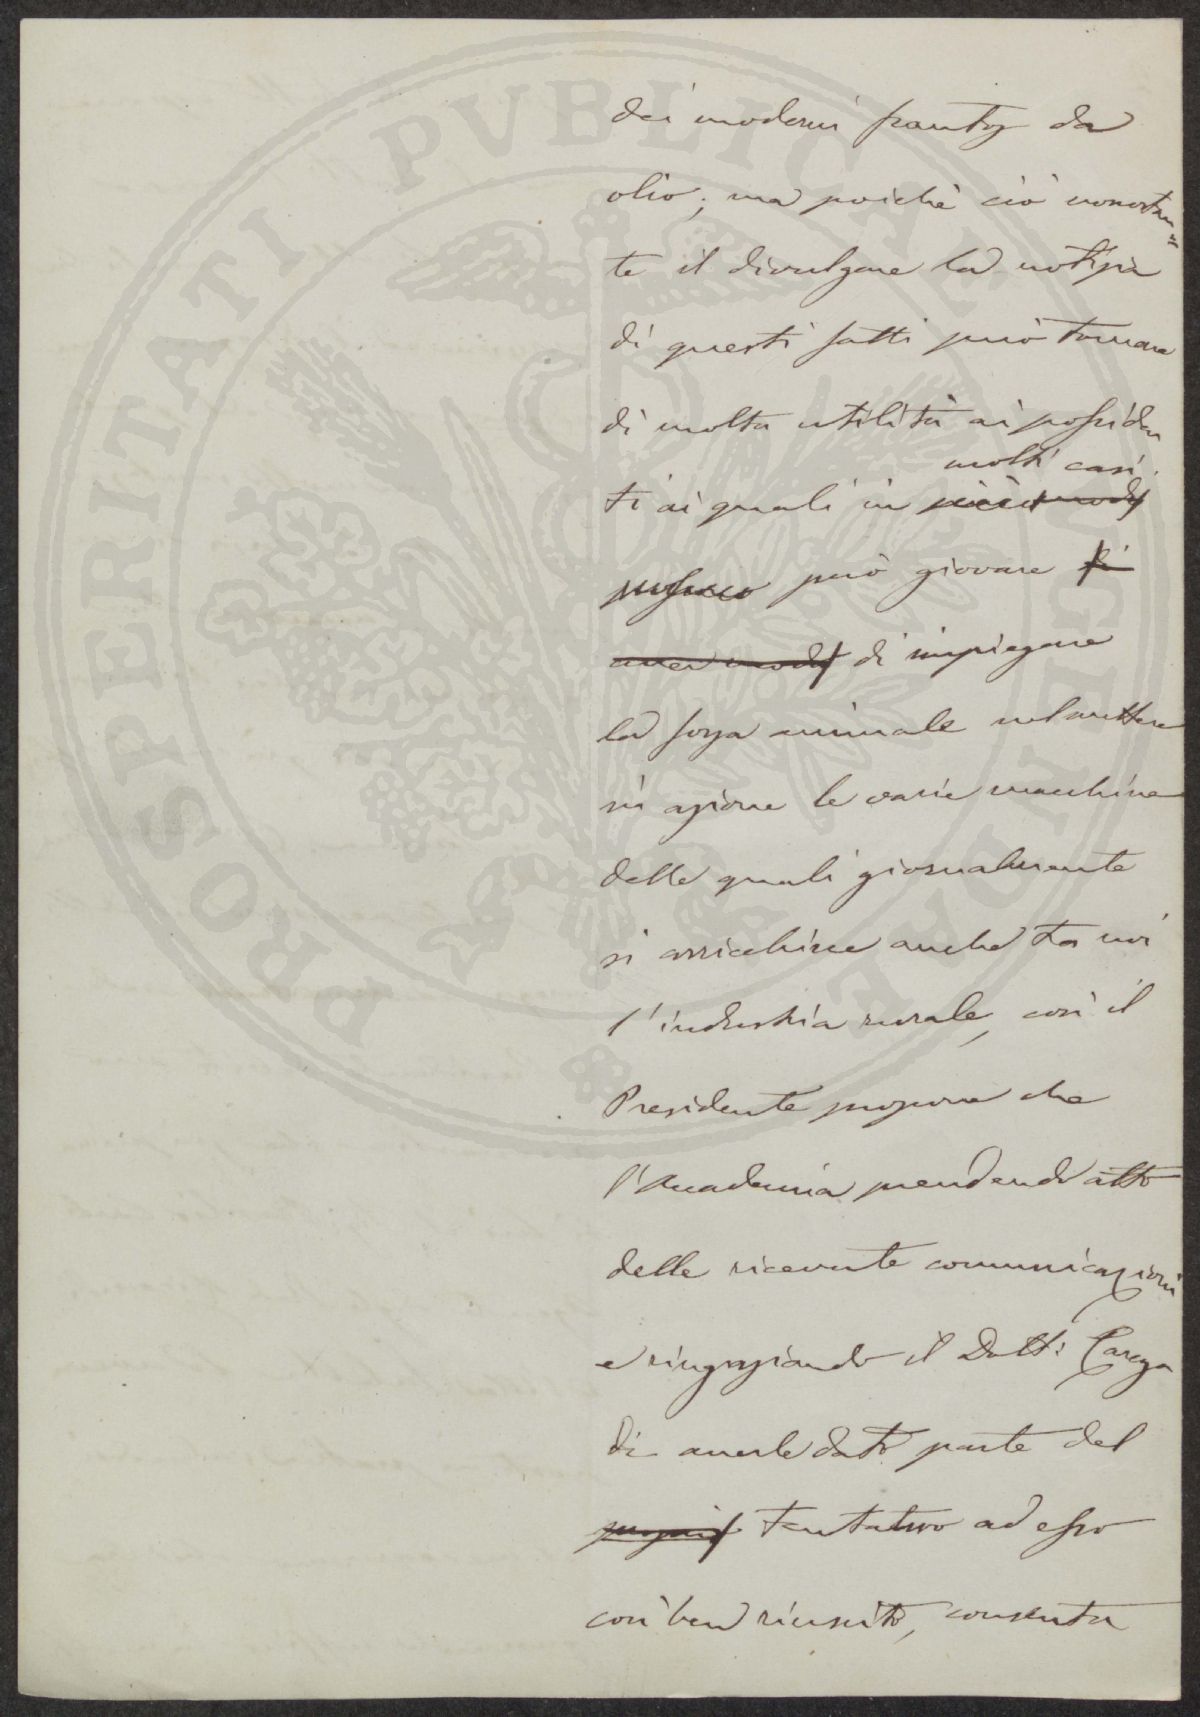 PROSPERITATI PVBLICAE AVGENDAE
dei moderni frantoj da
olio; ma poichè ciò nonostan=
te il divulgare la notizia
di questi fatti può tornare
di molta utilità ai possiden
molti casi
ti ai quali in
può giovare
di impiegare
la forza animale nel mettere
in azione le varie macchine
delle quali giornalmente
si arricchisce anche fra noi
l'industria rurale, così il
Presidente propone che
l'Accademia prendendo atto
delle ricevute comunicazioni
e ringraziando il Dott: Carega
di averle dato parte del
tentativo ad esso
così ben riuscito, consenta